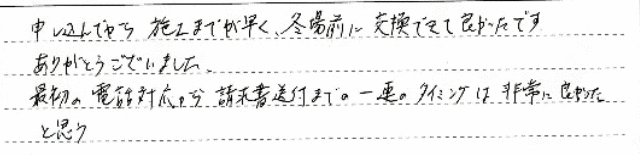 申し込んでから施工までが早く、冬場前に交換できて良かったです
ありがとうございました。
最初の電話対応から請求書送付までの一連のタイミングは非常に良かった
と思う